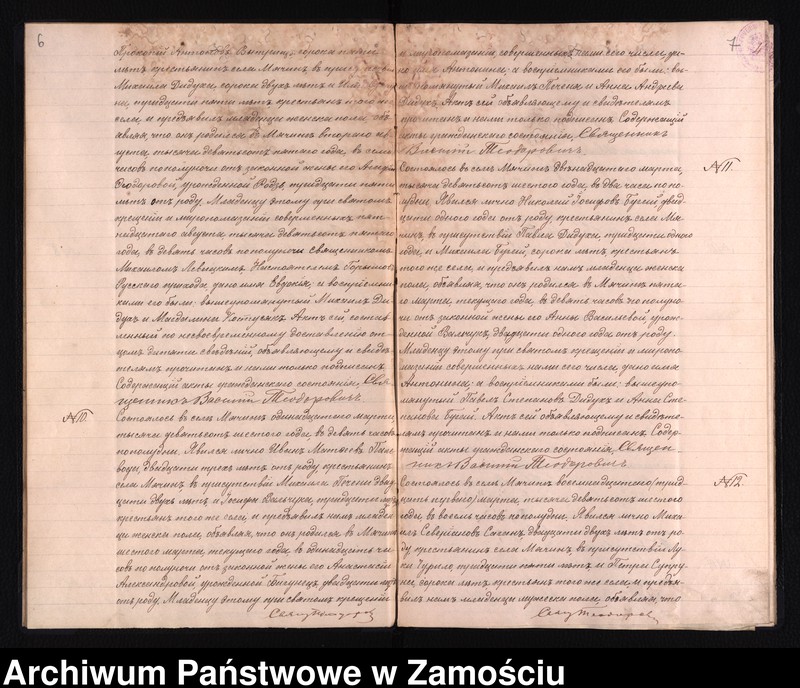 6
Прокопій Антоновъ сорока пяти
лѣтъ крестьянинъ села Мячинъ въ
Михаила Дидуха, сорока двухъ лѣтъ и
тридцати пяти лѣтъ крестьянъ того же
села, и предъявилъ младенца женска пола, объ
являя, что онъ родился въ Мячинѣ втораго ав
густа, тысяча девятьсотъ пятаго года, въ семь
часовъ пополуночи отъ законной жены его
урожденной тридцати пяти
лѣтъ отъ роду. Младенцу этому при святомъ
крещеніи и миропомазаніи совершенныхъ пят
надцатаго Августа тысяча девятьсотъ пятаго
года, въ девять часовъ пополуночи Священникомъ
Михаиломъ Левицкимъ, Настоятелемъ
Русскаго прихода, дано имя Евдокія, а воспріемни
ками его были: вышеупомянутый Михаилъ Ди
духъ и Магдалина Актъ сей состав
ленный по несвоевременному доставленію от
цемъ дитяти свѣдѣній, объявляющему и свидѣ
телямъ прочитанъ и нами только подписанъ
Содержащій акты гражданскаго состоянія, Свя
щенникъ Василій Теодоровичъ
№10.
Состоялось въ селѣ Мячинѣ одинадцатаго марта
тысяча девятьсотъ шестого года, въ девять часовъ
пополудни. Явился лично Иванъ
двадцати трехъ лѣтъ отъ роду, крестьянинъ
села Мячинъ въ присутствіи Михаила двад
цати двухъ лѣтъ и тридцати
крестьянъ того же села, и предъявилъ намъ младен
ца женска пола, объявляя, что онъ родился въ Мячинѣ
шестого марта, текущаго года, въ одинадцать ча
совъ пополуночи отъ законной жены его Анастасіи
Александровой урожденной двадцати
отъ роду. Младенцу этому при святомъ крещеніи
7
и миропомазаніи, совершенныхъ нами сего числа, да
но имя Антонина; а воспріемниками его были: вы
шеупомянутый Михаилъ и Анна Андреева
Дидухъ. Актъ сей объявляющему и свидѣтелямъ
прочитанъ и нами только подписанъ. Содержащій
акты гражданскаго состоянія, Священникъ
Василій Теодоровичъ.
№11.
Состоялось въ селѣ Мячинѣ двѣнадцатаго марта,
тысяча девятьсотъ шестого года, въ два часа попо
лудни. Явился лично Николай двад
цати одного года отъ роду, крестьянинъ села Мя
чинъ, въ присутствіи Павла Дидуха, тридцати одного
года, и Михаила сорока лѣтъ крестьянъ
того же села, и предъявилъ намъ младенца женска
пола, объявляя, что онъ родился въ Мячинѣ пята
го марта, текущаго года, въ девять часовъ пополуно
чи отъ законной жены его Анны Васильевой урож
денной двадцати одного года отъ роду.
Младенцу этому при святомъ крещеніи и миропо
мазаніи совершенныхъ нами сего числа, дано имя
Антонина; а воспріемниками были: вышеупо
мянутый Павелъ Степановъ Дидухъ и Анна Сте
панова Актъ сей объявляющему и свидѣте
лямъ прочитанъ и нами только подписанъ. Содер
жащій акты гражданскаго состоянія, Священ
никъ Василій Теодоровичъ
№12.
Состоялось въ селѣ Мячинѣ восемнадцатаго (трид
цать перваго) марта, тысяча девятьсотъ шестого
года, въ восемь часовъ пополудни. Явился лично Миха
илъ двадцати двухъ лѣтъ отъ ро
ду крестьянинъ села Мячинъ, въ присутствіи Лу
ки тридцати пяти лѣтъ и Петра
сорока лѣтъ крестьянъ того же села, и предъя
вилъ намъ младенца мужеска пола, объявляя, что
Archiwum Państwowe w Zamościu